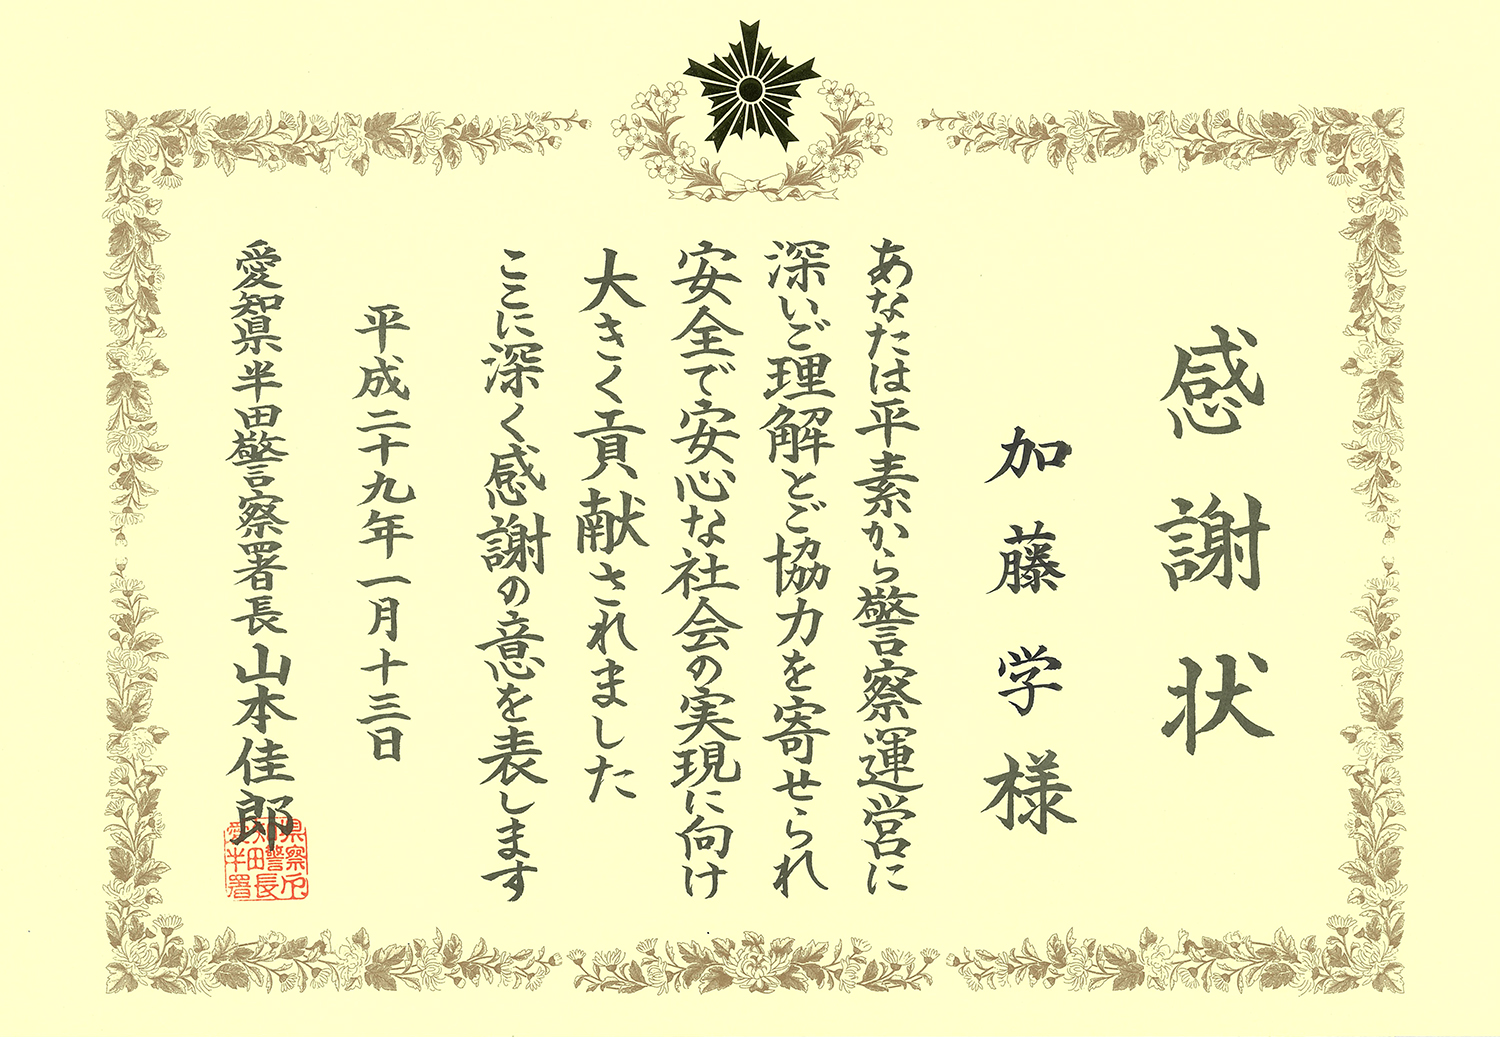 感謝状
加藤学様
あなたは平素から警察運営に
深いご理解とご協力を寄せられ
安全で安心な社会の実現に向け
大きく貢献されました
ここに深く感謝の意を表します
平成二十九年一月十三日
愛知県半田警察署長 山本佳郎